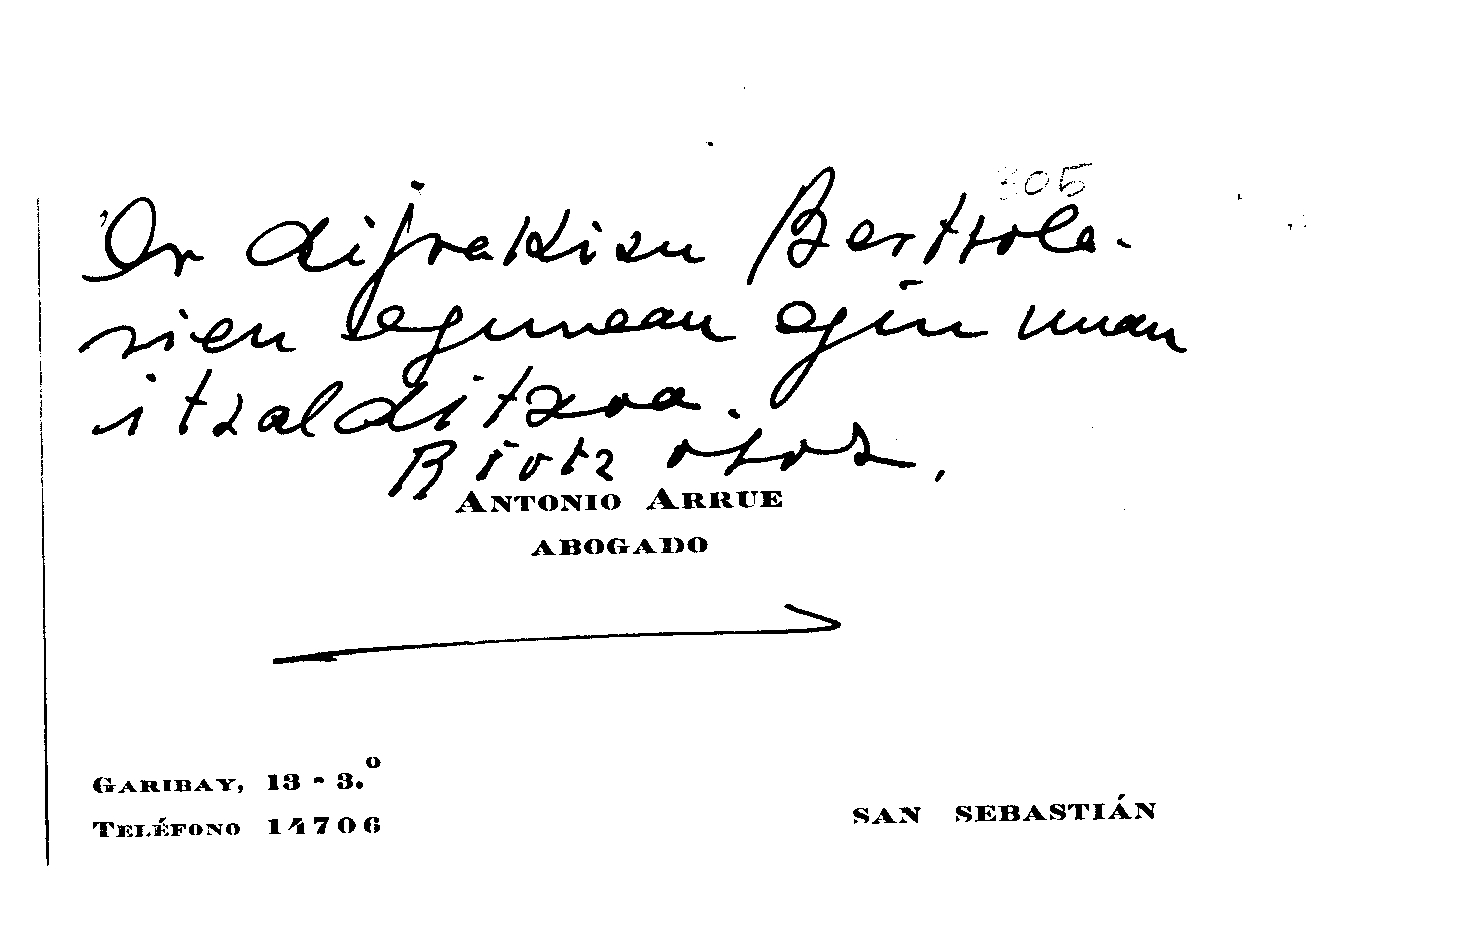 305
'Or dijoakizu Bertsola-
rien egunean egin nuan
itzalditxoa.
Biotz otoz,
ANTONIO ARRUE
ABOGADO
GARIBAY, 13 - 3.º
TELÉFONO 14706
SAN SEBASTIÁN